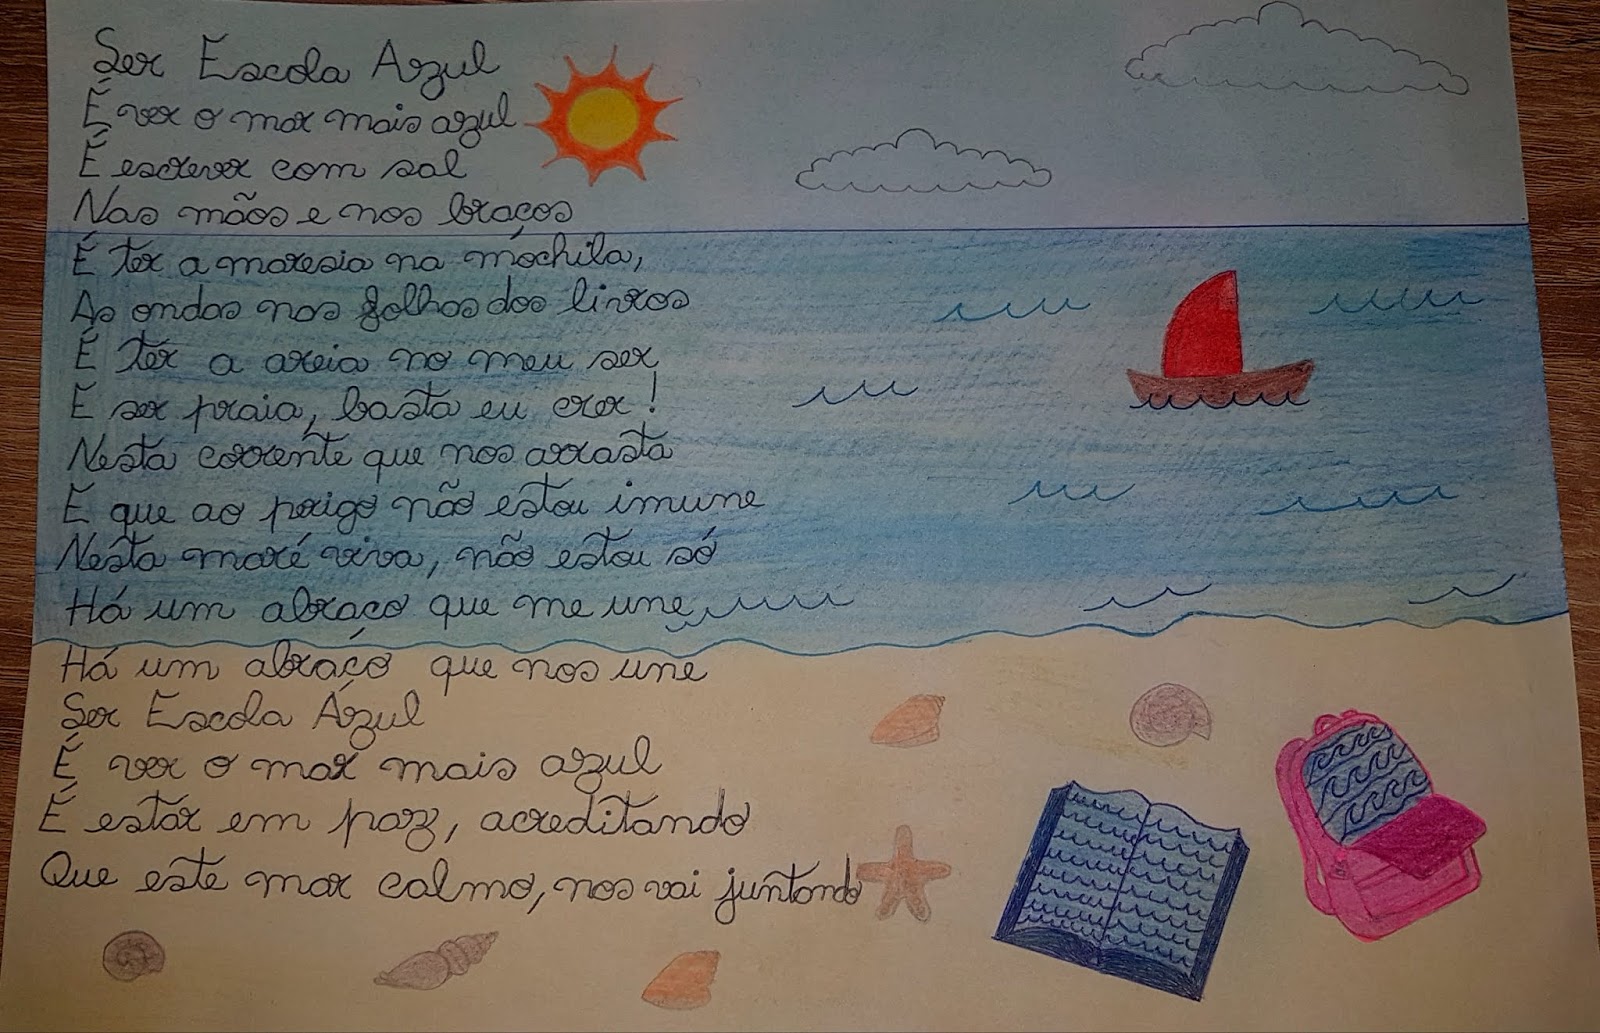 Ser Escola Azul
É ver o mar mais azul
É escrever com sal
Nas mãos e nos braços
É ter a maresia na mochila,
As ondas nas folhas dos livros
É ter a areia no meu ser
E ser praia, basta eu crer!
Nesta corrente que nos arrasta
E que ao perigo não estou imune
Nesta maré viva, não estou só
Há um abraço que me une
Há um abraço que nos une
Ser Escola Azul
É ver o mar mais azul
É estar em paz, acreditando
Que este mar calmo, nos vai juntando